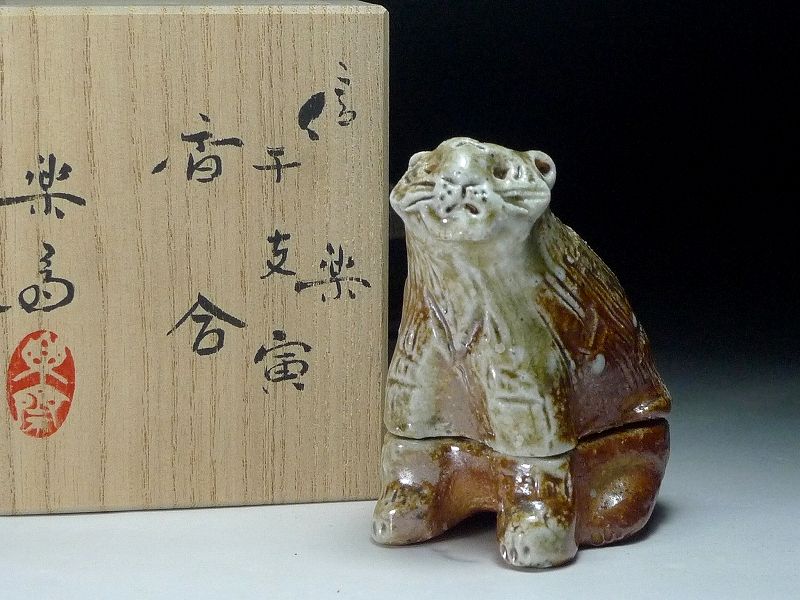 信楽
干支寅
香合
楽斎